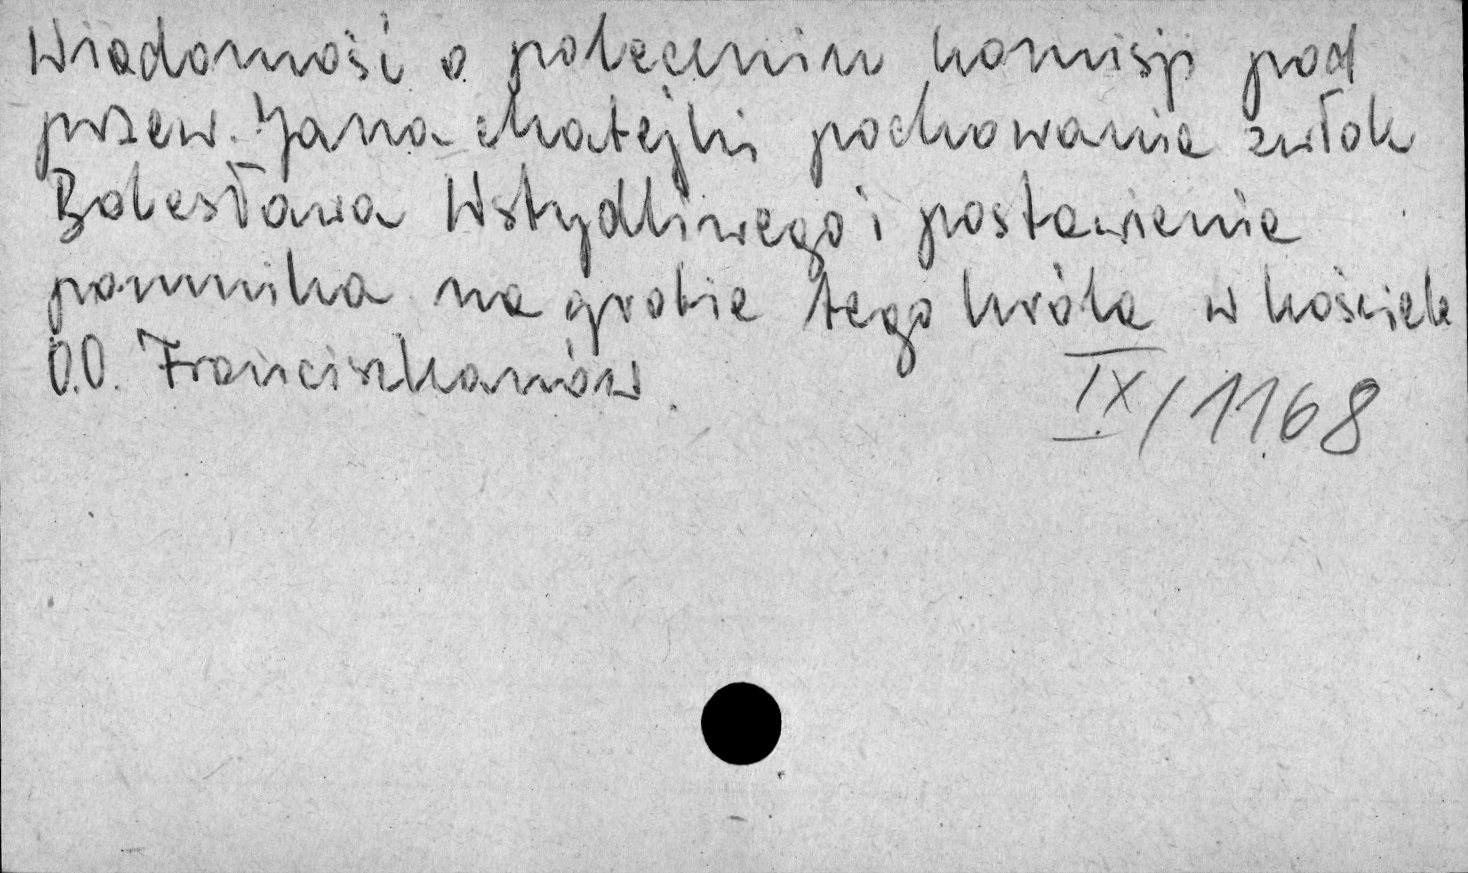 Wiadomość o poleceniu komisji pod
przew. Jana Matejki pochowanie zwłok
Bolesława Wstydliwego i postawienie
pomnika na grobie tego króla w kościele
O.O. Franciszkanów.
IX/1168